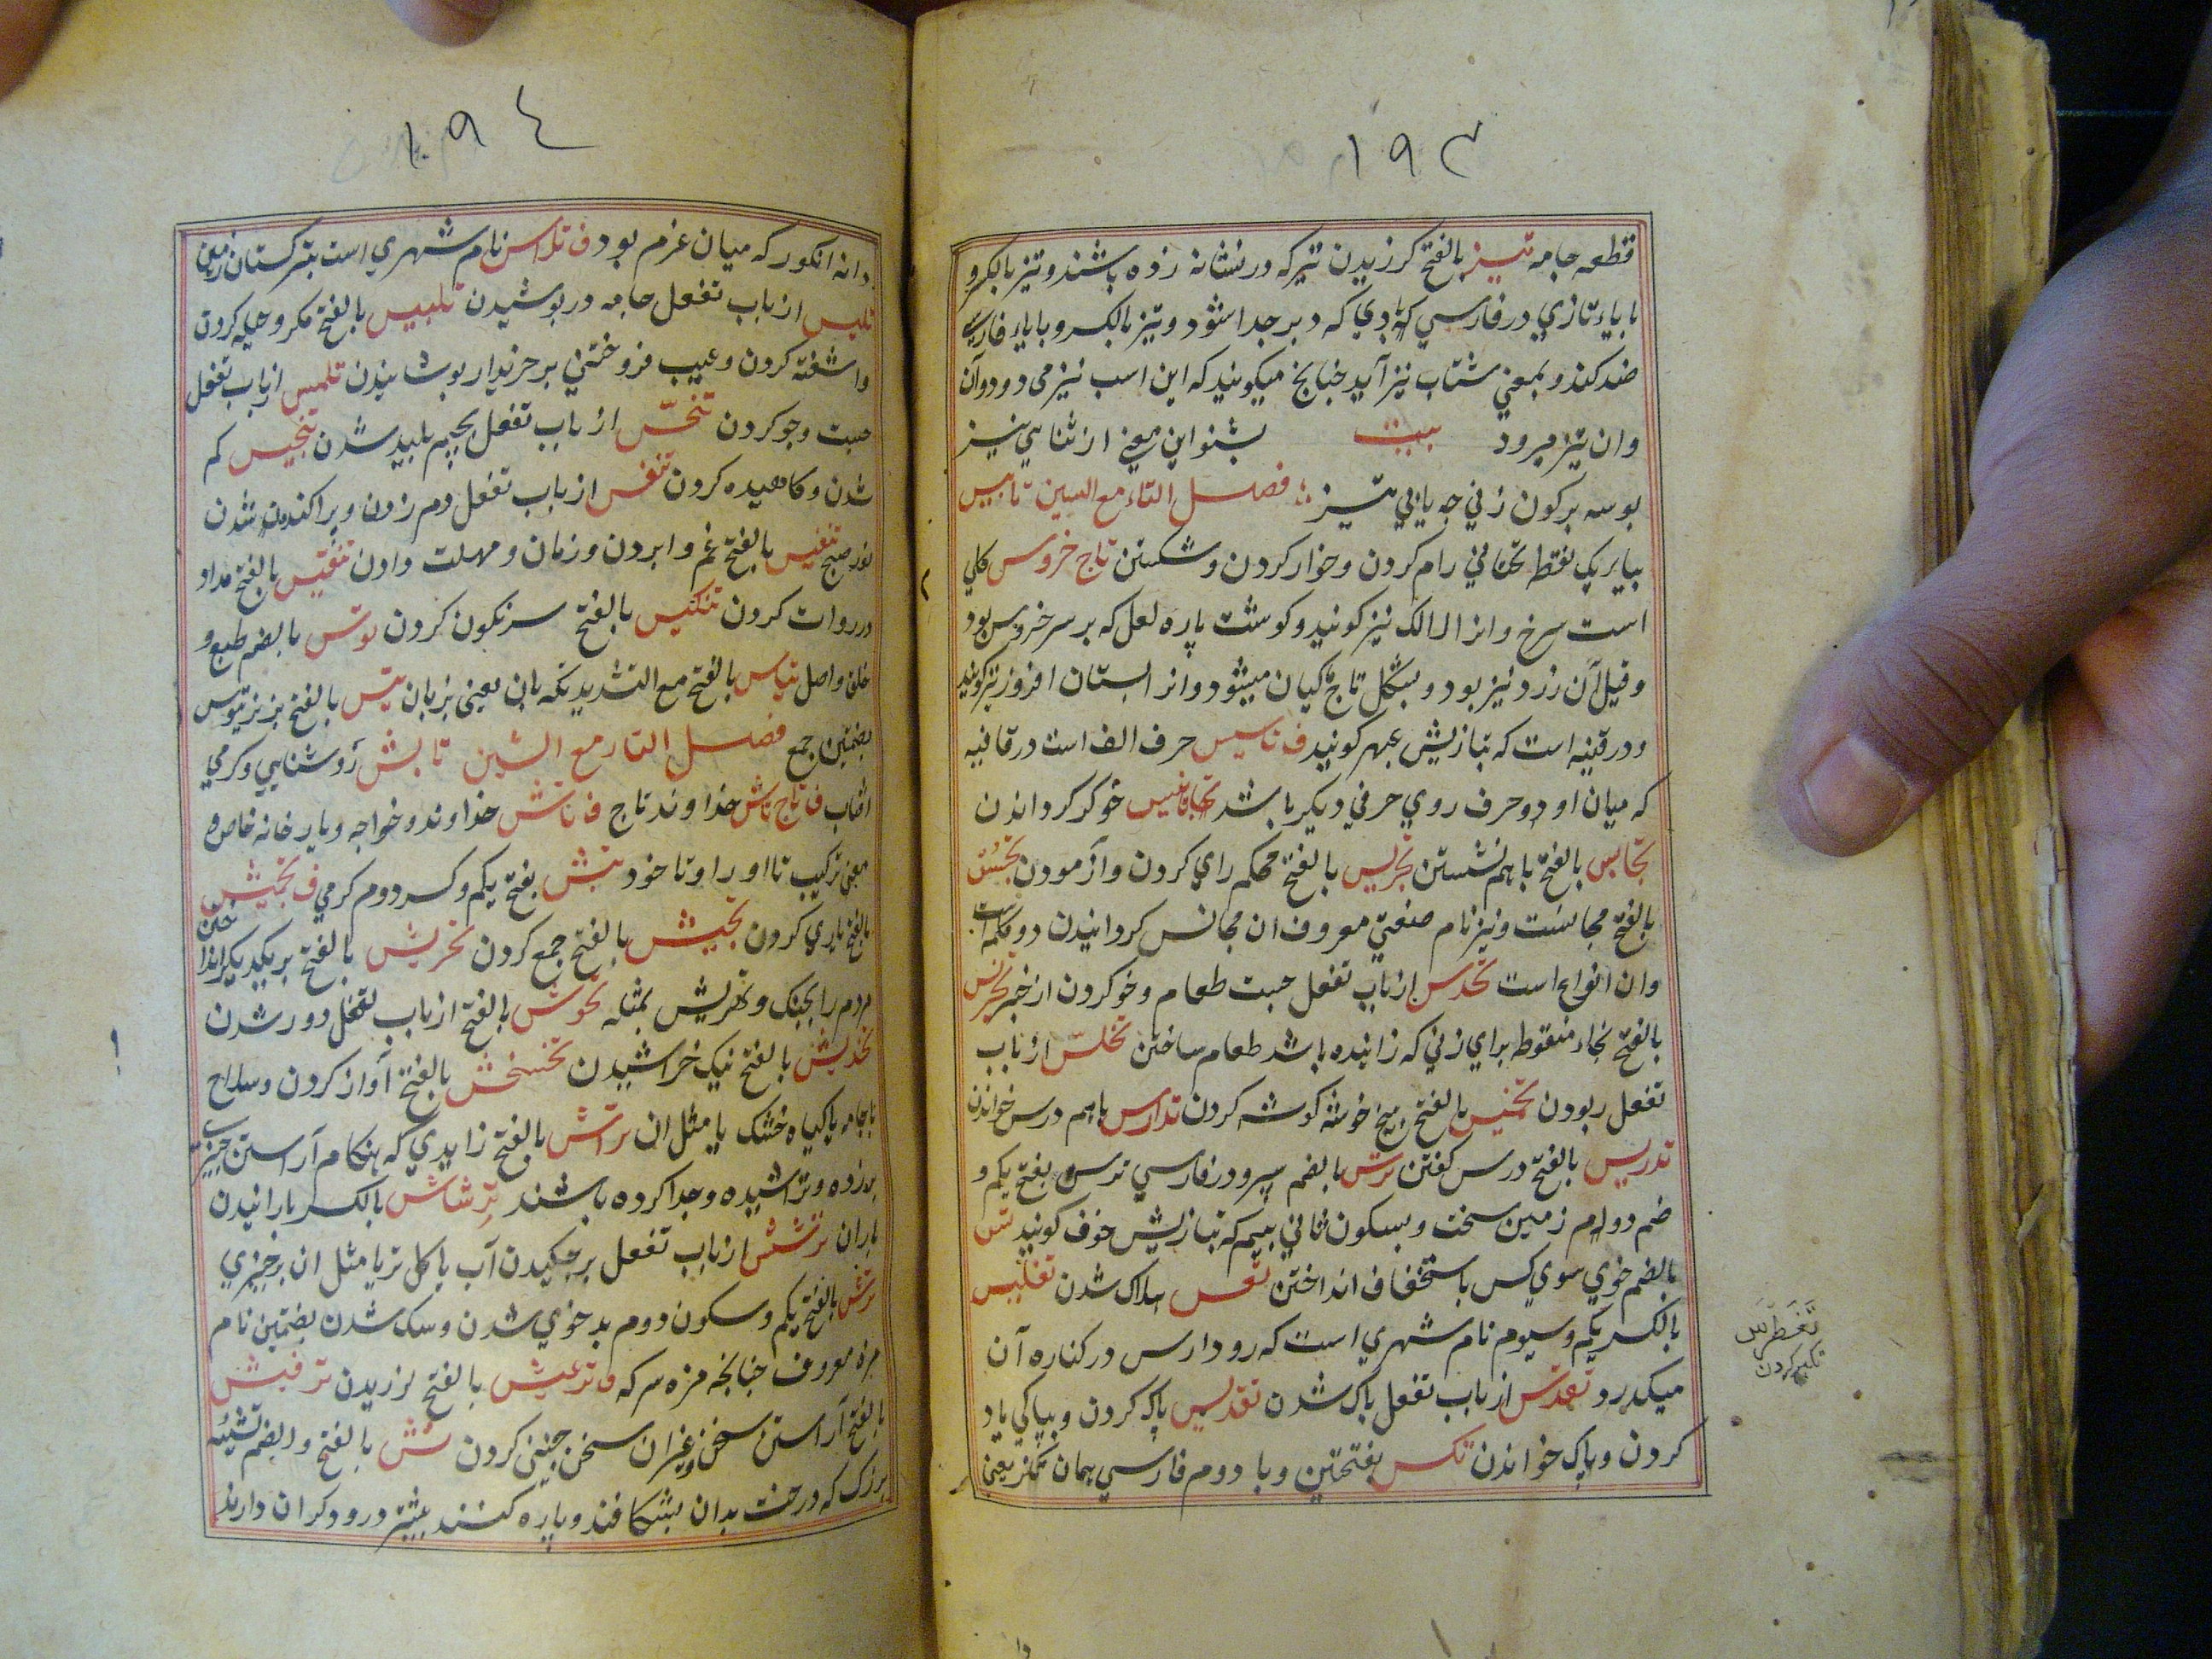 ۱۹۳
قطعه جامه تیز بالفتح کرزیدن تیر که در نشانه زده باشند و تیز بالکسر و
با یاء تازی در فارسی بادی که از دبر جدا شود و تیز بالکسر و با یاء فارسی
ضد کند و بمعنی شتاب نیز آید چنانچ میکویند که این اسب تیز می دود و آن
وان تیز میرود بیت بشنو این معنی از ثنایی نیز
بوسه بر کون زنی چه یابی تیز فصل التاء مع السین تابیس
بیاء یک نقطه تحتانی رام کردن و خوار کردن و شکستن تاج خروس کلی
است سرخ و انرا لالک نیز کویند و کوشت پاره لعل که بر سر خروس بود
و قیل آن زرد نیز بود و بشکل تاج کیان میشود و انرا بستان افروز نیز کویند
و در قنیه است که بتازیش عبهر کویند ف تاسیس حرف الف است در قافیه
که میان او و حرف روی حرفی دیکر باشد خوکر کردانیدن
تجالس بالفتح باهم نشستن تجریس بالفتح محکم رای کردن و آزمودن تجنیس
بالفتح مجانست و نیز نام صنعتی معروف ان مجانس کردانیدن دو کلمه است
وان انواع است تحدس از باب تفعل جست طعام و خو کردن از خبر تخریس
بالفتح بخاء منقوطه برای زنی که زائیده باشد طعام ساختن تخلس از باب
تفعل ربودن تخمیس بالفتح پنج خوشه کوشه کردن تدارس باهم درس خواندن
تدریس بالفتح درس کفتن ترس بالضم سپر و در فارسی ترس بفتح یکم و
ضم دوم زمین سخت و بسکون ثانی بیم که بتازیش خوف کویند تس
بالضم خوی سوی کس باستخفاف انداختن تعس هلاک شدن تفلیس
بالکسر یکم و سیوم نام شهری است که رود ارس در کناره آن
میکذرد تقدس از باب تفعل پاک شدن تقدیس پاک کردن و بپاکی یاد
کردن و پاک خواندن تکس بفتحتین و با دوم فارسی همان تکز یعنی
تغطرس
تکبر کردن
۱۹٤
دانه انکور که میان غژم بود ف تلاس نام شهری است بترکستان زمین
تلبس از باب تفعل جامه در پوشیدن تلبیس بالفتح مکر و حیله کردن
واشفته کردن و عیب فروختنی بر خریدار پوشانیدن تلمس از باب تفعل
جست وجو کردن تنجس از باب تفعل بجیم پلید شدن تنجیس کم
شدن و کاهیده کردن تنفس از باب تفعل دم زدن و پراکنده شدن
نور صبح تنفیس بالفتح غم وابردن و زمان و مهلت دادن تنقیس بالفتح مداد
در دوات کردن تنکیس بالفتح سرنکون کردن توس بالضم طبع و
خلق و اصل تیاس بالفتح مع التشدید تکه بان یعنی بزبان تیس بالفتح بز نر تیوس
بضمتین جمع فصل التاء مع الشین تابش روشنایی و کرمی
افتاب ف تاج تاش خداوند تاج ف تاش خداوند و خواجه و یار خانه خاص و
معنی ترکیب تا او را و تا خود تبش بفتح یکم و کسر دوم کرمی ف تجیش
بالفتح یاری کردن تجیش بالفتح جمع کردن تحریش بالفتح بریکدیکر انداختن
مردم را بجنک و تهریش بمثله تحوش بالفتح از باب تفعل دور شدن
تخدیش بالفتح نیک خراشیدن تخشخش بالفتح آواز کردن و سلاح
یا جامه یا کیاه خشک یا مثل ان تراش بالفتح زایدی که هنکام آراستن چیزی
بر زده و تراشیده و جدا کرده باشند ترشاش بالکسر بارانیدن
باران ترشش از باب تفعل برچکیدن آب یا کل تر یا مثل ان بر چیزی
ترش بالفتح یکم و سکون دوم بد خوی شدن و سبک شدن بضمتین نام
مزه معروف چنانچه مزه سرکه ف ترعیش بالفتح لرزیدن ترقیش
بالفتح آراستن سخن و غیر ان سخن چینی کردن تش بالفتح و الضم تیشه
بزرک که درخت بدان بشکافند و پاره کنند بیشتر درودکران دارند